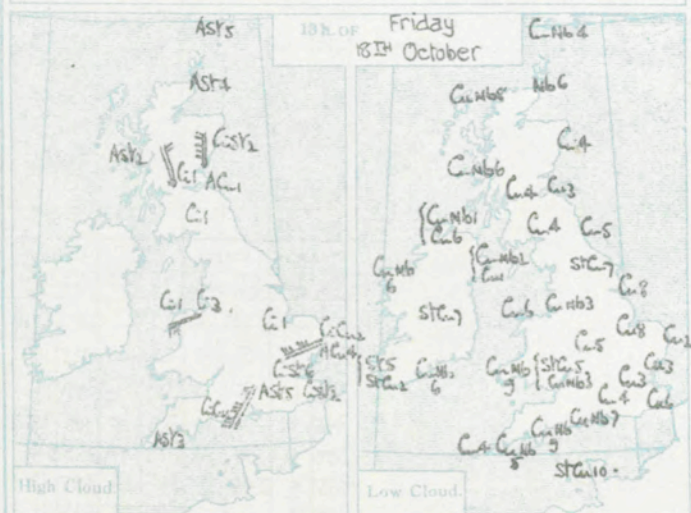 13h. OF Friday
18TH October
ASt5
ASt4
ASt2
CiSt2
Ci1
ACu1
Ci1
Ci1 Ci3
Ci1
CiCu2
ACu4
CiSt6
ASt5 CiSt2
ASt3
High Cloud.
CuNb4
CuNb8 Nb6
Cu4
CuNb6
Cu4 Cu3
CuNb1
Cu6
Cu4 Cu5
CuNb2
CuNb
6
StCu7
Cu8
StCu7
Cu6 CuNb3
Cu8
Cu5
St5
StCu2
CuNb
9
StCu5
CuNb3
Cu3
Cu3
Cu4
Cu6
CuNb7
CuNb
9
Cu4 CuNb
8
StCu10
Low Cloud.